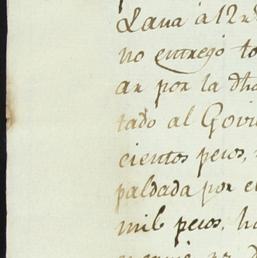 Lana à 12 r
no entrejo to
an por la dha
tado al Govi
cientos pesos,
paldada por e
mil pesos, ha